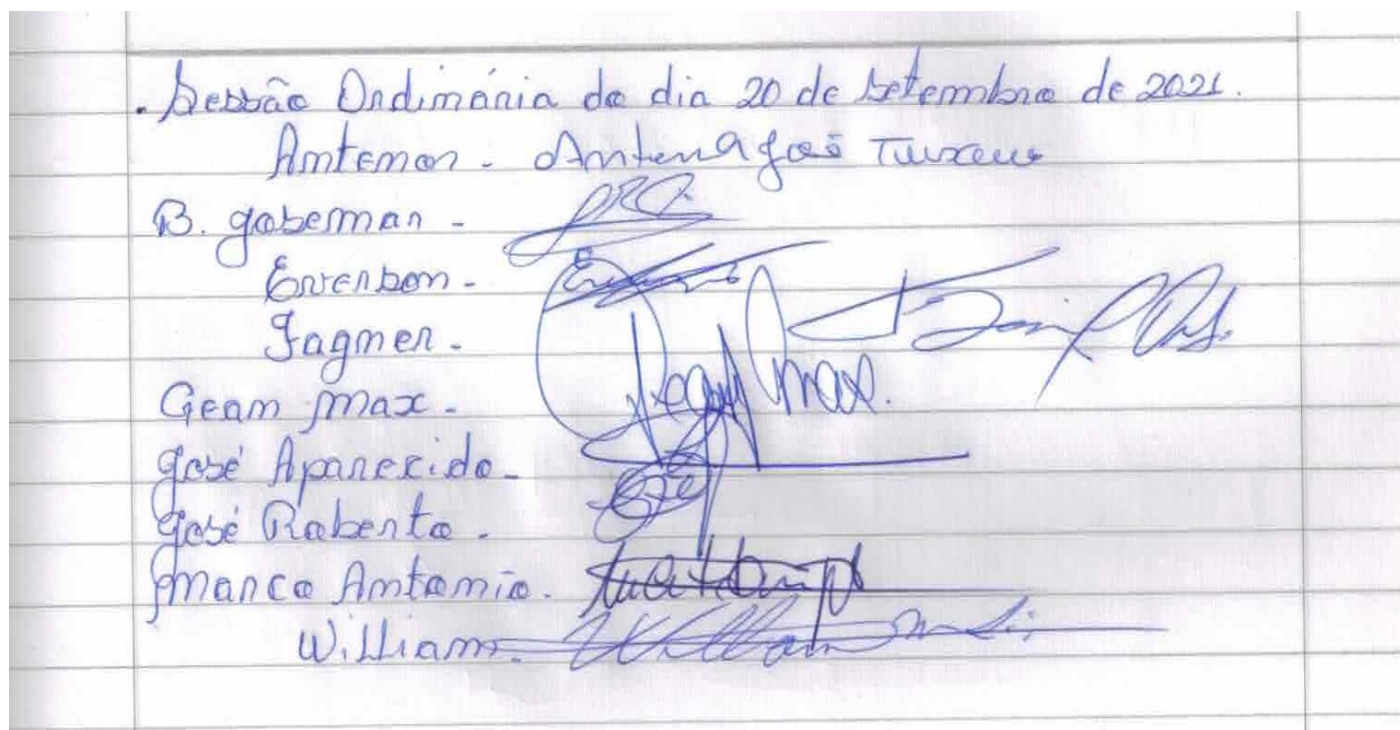 . Sessão Ordinária do dia 20 de setembro de 2021.
Antenor - Antenor José
B. Joseman -
Everson -
Fagner -
Gean Max - Max.
José Aparecido -
José Roberto -
Marco Antonio.
William -